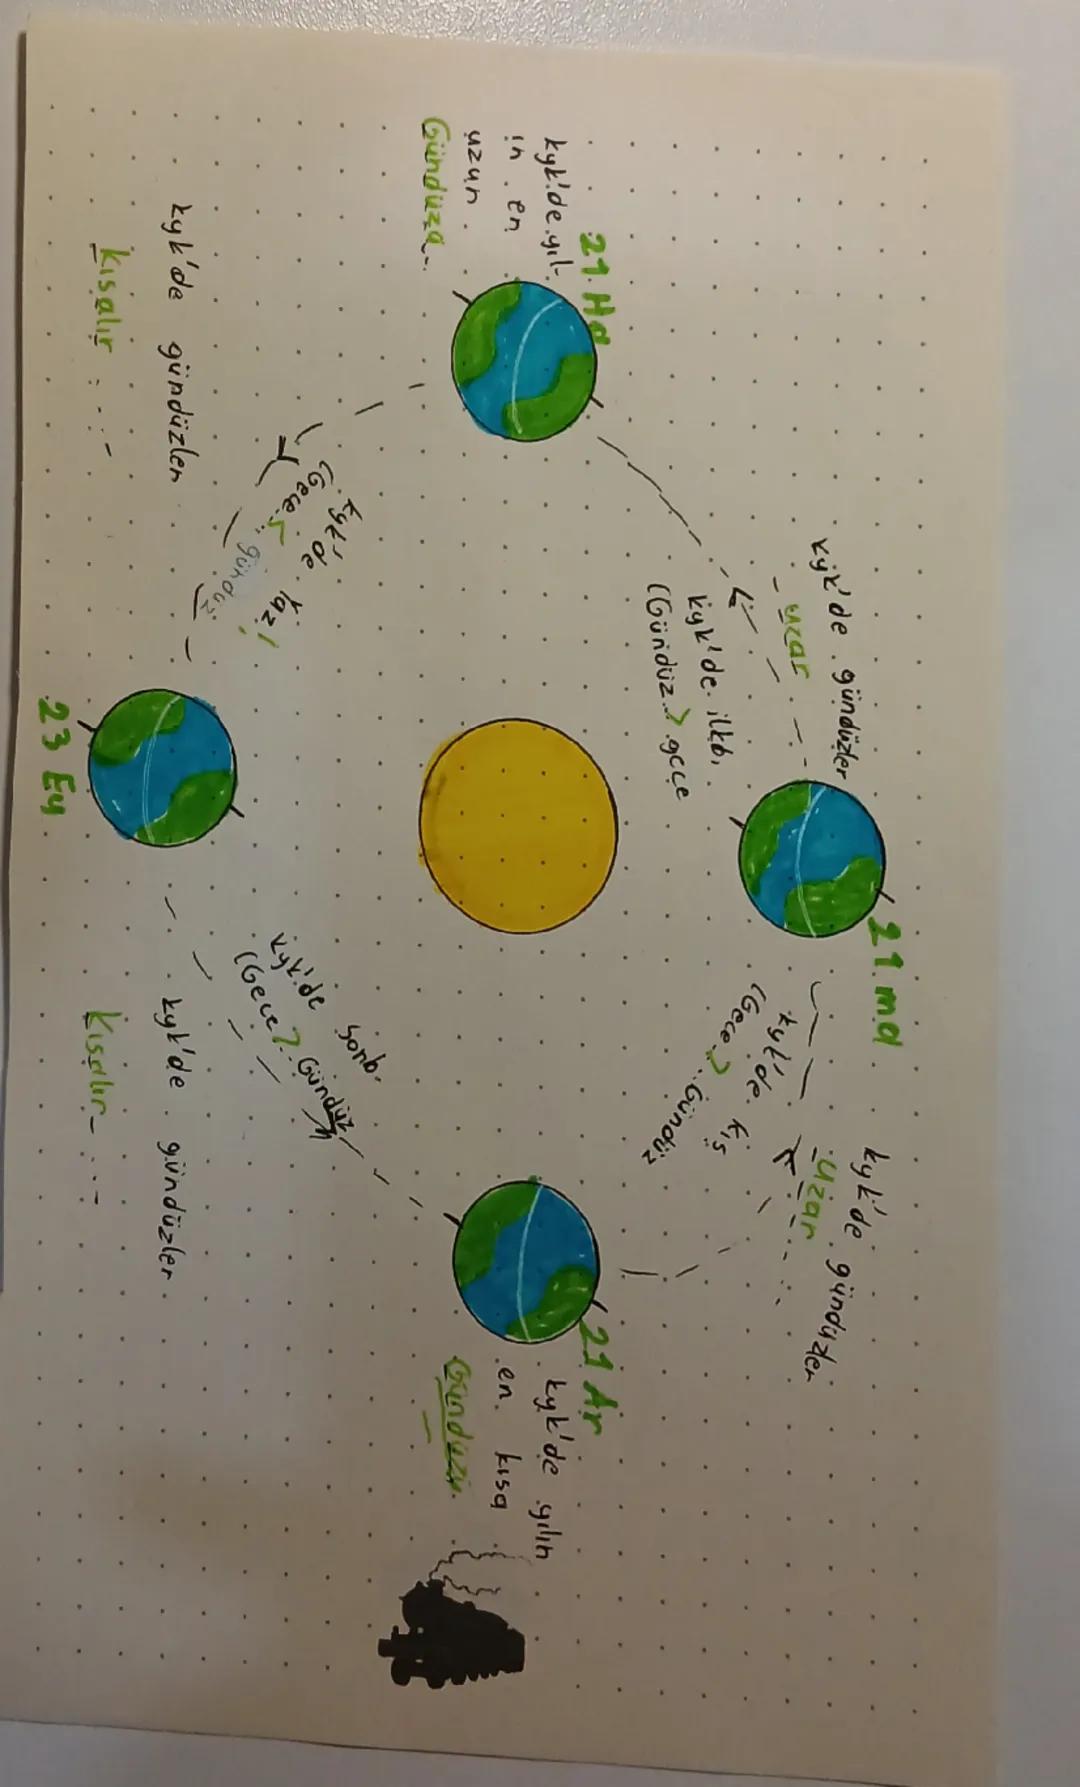 21 ma
kyk'de gündüzler
uzar
kyk'de gündüzler
uzar
kyk'de ilkb.
(Gündüz > gece
kyk'de kış
(Gece > Gündüz
21 Ha
kyk'de yıl-
ın en
uzun
Gündüzü
21 Ar
kyk'de yılın
en kısa
Gündüzü
kyk'de Yaz!
(Gece < gündüz
kyk'de sonb.
(Gece > Gündüz
23 Ey
kyk'de gündüzler
kısalır
kyk'de gündüzler
kısalır